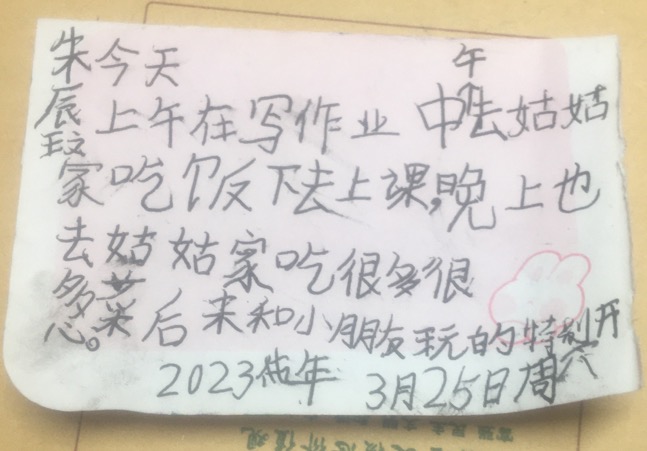 朱辰玟
今天
上午在写作业 中午去姑姑
家吃饭下去上课,晚上也
去姑姑家吃很多很
多菜后来和小朋友玩的特别开
心。
2023年 3月25日周六